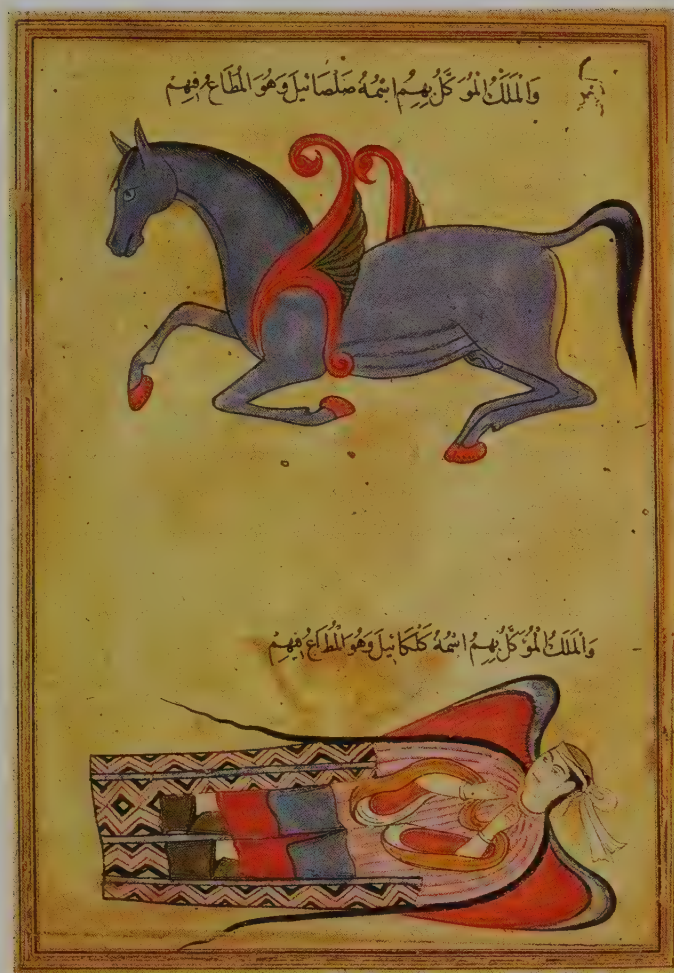 وَالْمَلَكُ الْمُوَكَّلُ بِهِمُ اسْمُهُ صَلْصَائِيلَ وَهُوَ الْمُطَاعُ فِيهِمْ
وَالْمَلَكُ الْمُوَكَّلُ بِهِمُ اسْمُهُ كَلْكَائِيلَ وَهُوَ الْمُطَاعُ فِيهِمْ